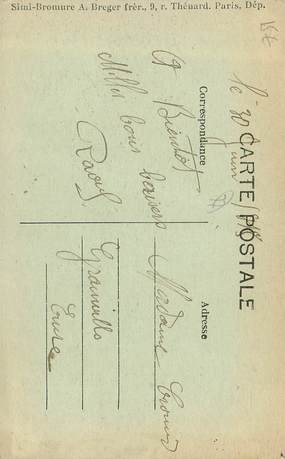 Simi-Bromure A. Breger frèr., 9, r. Thénard. Paris, Dép.
CARTE POSTALE
Correspondance
Adresse
le 30 juin
A Bientôt
Mille bons baisers
Raoul
Madame
Grainville
Eure